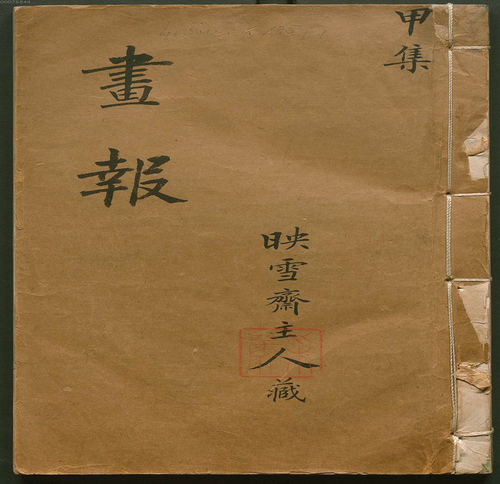 甲集
畫報
映雪齋主人藏